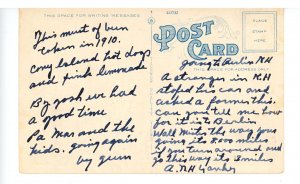 THIS SPACE FOR WRITING MESSAGES
POST CARD
PLACE
STAMP
HERE
This must of ben
taken in 1910.
Cony Island hot dogs
and pink lemonade
By gosh we had
a good time
Pa Mar and the
kids. going again
by gum
going to Berlin NH
A stranger in NH
stoped his car and
asked a farmer this.
Can you tell me how
far it is to Berlin
Well Mist the way your
going its 8,000 miles
if you turn around and
go this way its 3 miles
A. NH Yankey